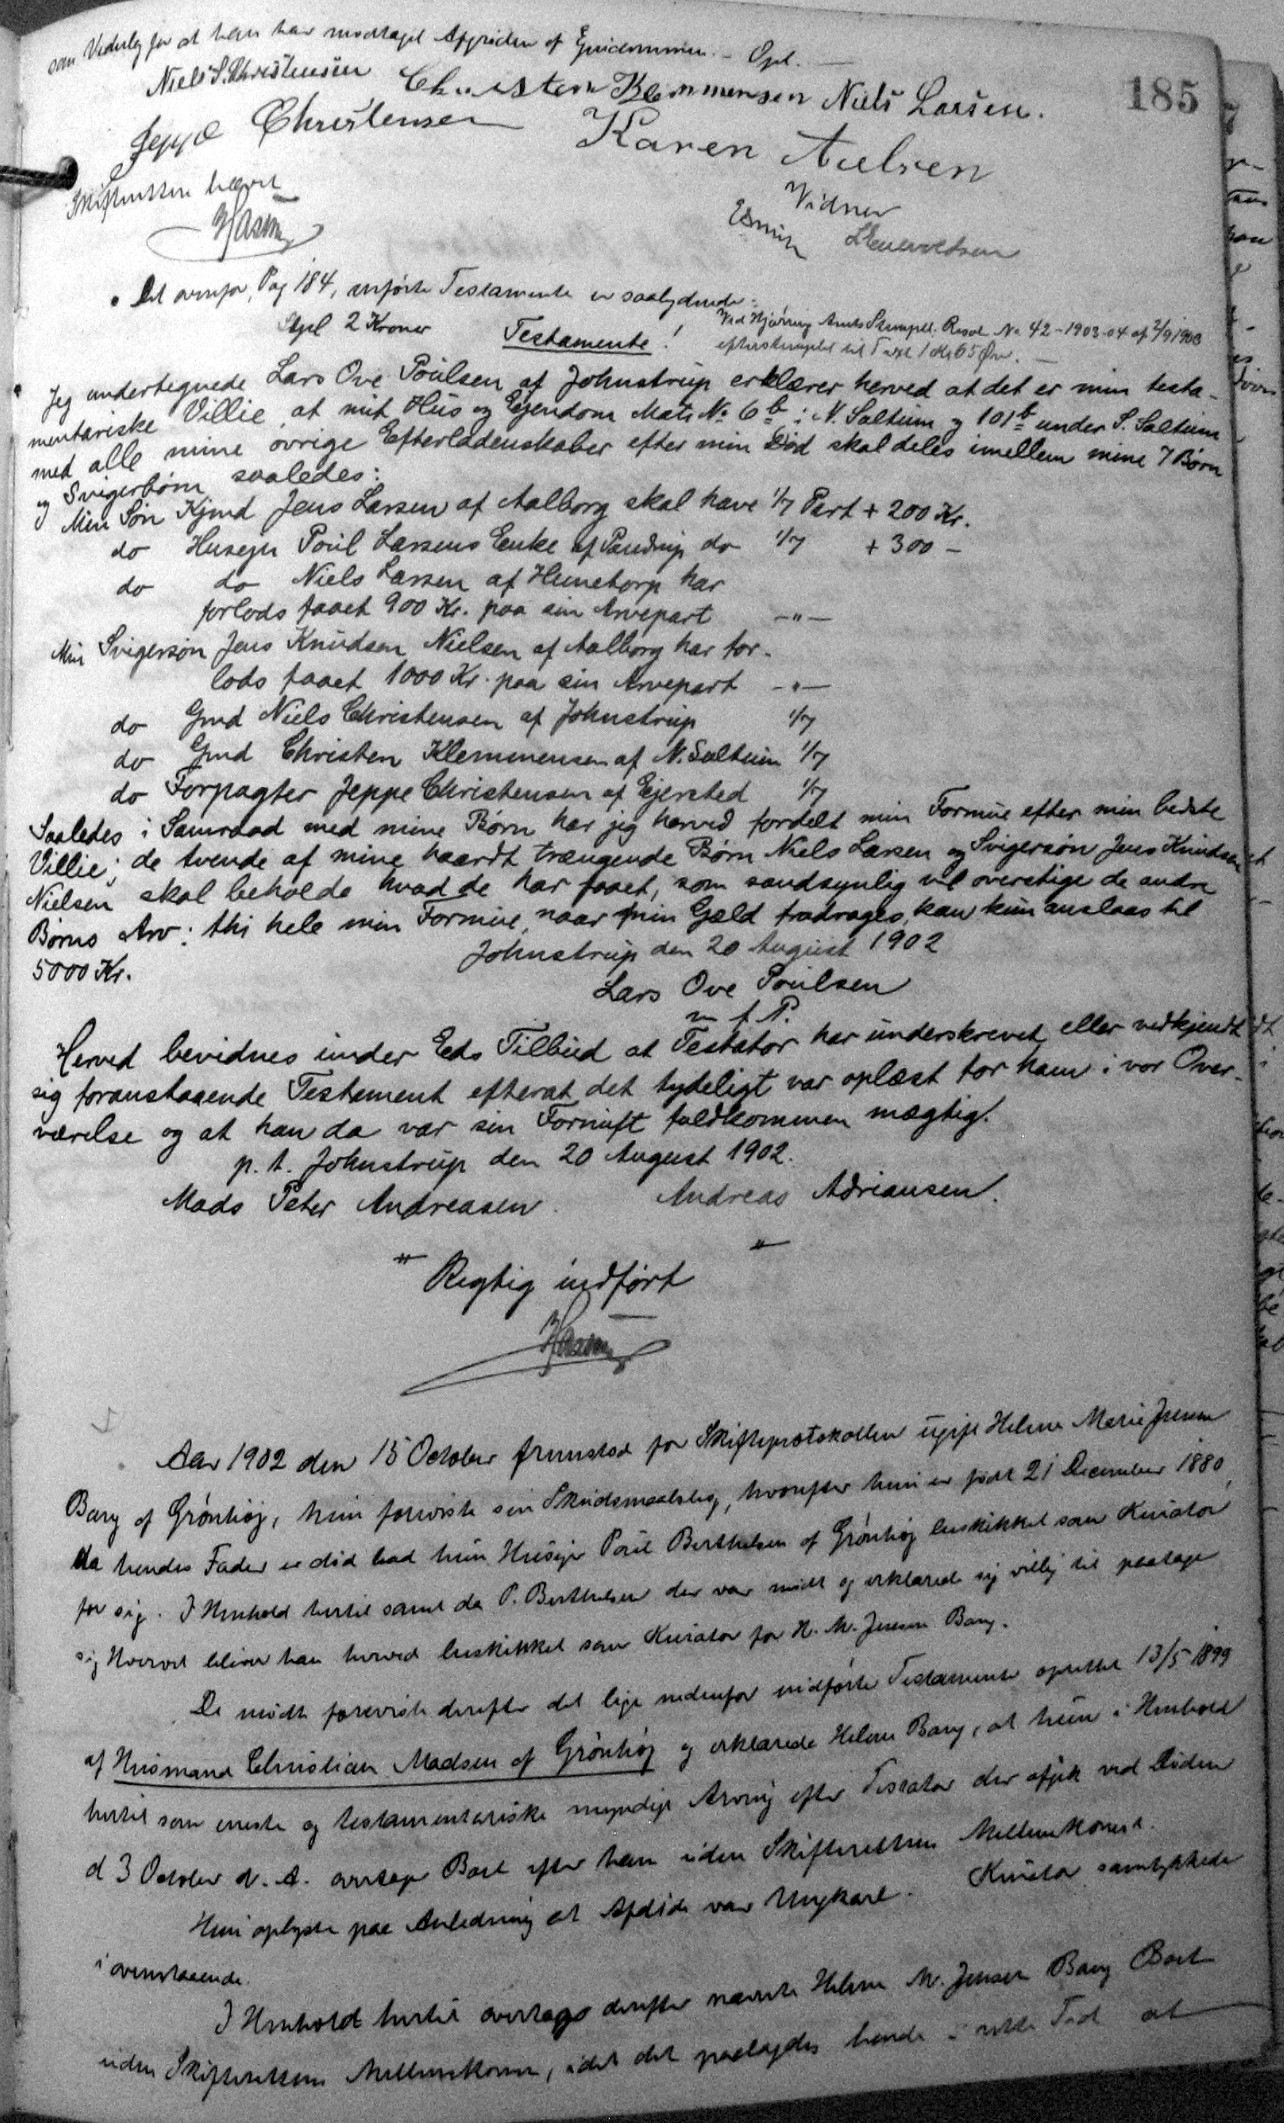 som Vederlag for at han har modtaget Afgrøden af Ejendommen. - Opl. -
Niels S. Christensen Christen Klemmensen Niels Larsen.
185
Jeppe Christensen Karen Nielsen
Skifteretten hævet
Vidner
Det ovenfor, Pag 184, anførte Testamente er saalydende:
Stpl 2 Kroner Testamente!
Ved Hjørring Amts Stempel. Resol. No 42-1903-04 af 2/9 1903
efterstemplet til Taxt 1 Kr 65 Øre. -
Jeg undertegnede Lars Ove Poulsen af Johnstrup erklærer herved at det er min testa-
mentariske Villie, at mit Hus og Ejendom Matr No 6b i N. Saltum og 101b under S. Saltum
med alle mine øvrige Efterladenskaber efter min Død skal deles imellem mine 7 Børn
og Svigerbørn saaledes:
Min Søn Kjmd Jens Larsen af Aalborg skal have 1/7 Part + 200 Kr.
do Husejer Poul Larsens Enke af Pandrup do 1/7 + 300 -
do do Niels Larsen af Hunetorp har
forlods faaet 900 Kr. paa sin Arvepart -"-
Min Svigersøn Jens Knudsen Nielsen af Aalborg har for-
lods faaet 1000 Kr. paa sin Arvepart -"-
do Gmd Niels Christensen af Johnstrup 1/7
do Gmd Christen Klemmensen af N. Saltum 1/7
do Forpagter Jeppe Christensen af Ejersted 1/7
Saaledes i Samraad med mine Børn har jeg herved fordelt min Formue efter min bedste
Villie; de tvende af mine haardt trængende Børn Niels Larsen og Svigersøn Jens Knudsen
Nielsen skal beholde hvad de har faaet, som sandsynlig vil overstige de andre
Børns Arv: thi hele min Formue, naar min Gæld fradrages, kan kun anslaas til
5000 Kr.
Johnstrup den 20 August 1902
Lars Ove Poulsen
m f P.
Herved bevidnes under Eds Tilbud at Testator har underskrevet eller vedkjendt
sig foranstaaende Testament efterat det tydeligt var oplæst for ham i vor Over-
værelse og at han da var sin Fornuft fuldkommen mægtig.
p. t. Johnstrup den 20 August 1902.
Mads Peter Andreasen. Andreas Adriansen.
" "
Rigtig indført
Aar 1902 den 15 October fremstod for Skifteprotokollen ugift Helene Marie Jensen
Bang af Grønhøj, hun foreviste sin Skudsmaalsbog, hvorefter hun er født 21 December 1880,
da hendes Fader er død bad hun Husejer Poul Berthelsen af Grønhøj beskikket som Kurator
for sig. I Henhold hertil samt da P. Berthelsen der var mødt og erklærede sig villig til paatage
sig Hvervet bliver han herved beskikket som Kurator for H. M. Jensen Bang.
De mødte foreviste derefter det lige nedenfor indførte Testamente oprettet 13/5 1899
af Husmand Christian Madsen af Grønhøj og erklærede Helene Bang, at hun i Henhold
hertil som eneste og testamentariske myndige Arving efter Testator der afgik ved Døden
d 3 October d. A. overtager Boet efter ham uden Skifterettens Mellemkomst.
Hun oplyste paa Anledning at Afdøde var Ungkarl. Kurator samtykkede
i ovenstaaende.
I Henhold hertil overtages derefter nævnte Helene M. Jensen Bang Boet
uden Skifterettens Mellemkomst, idet det paalagdes hende i rette Tid at